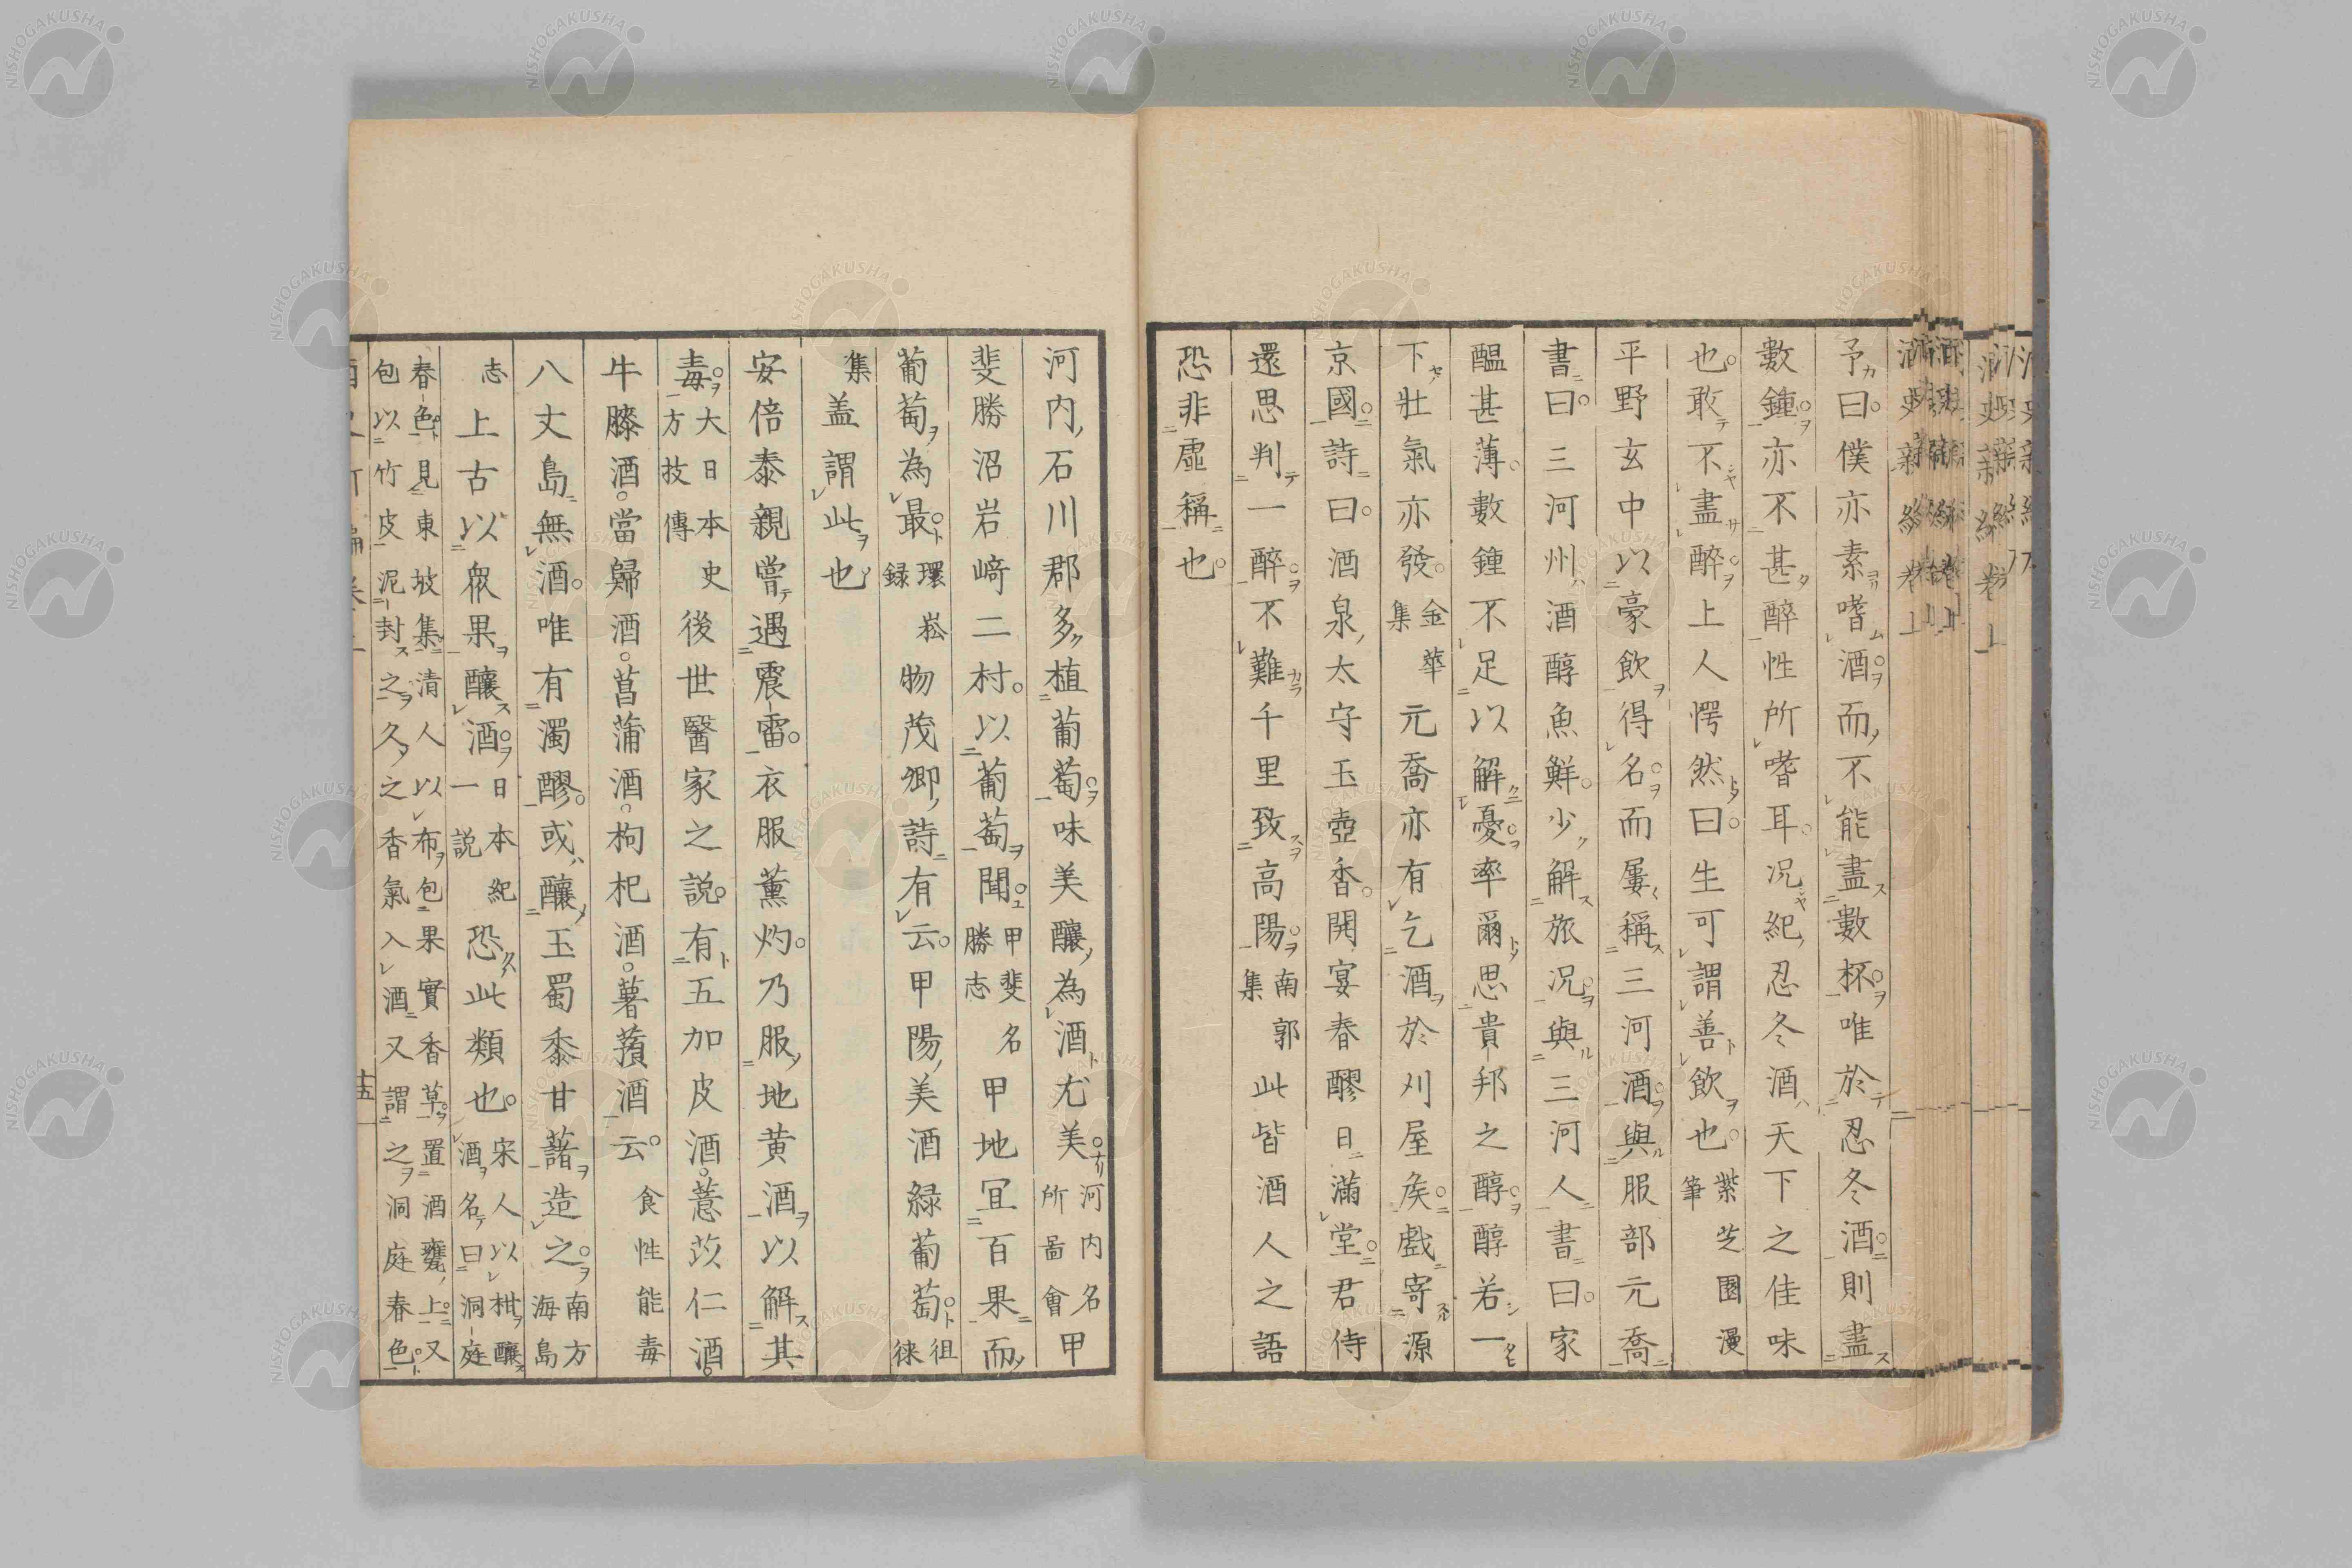 予曰僕亦素嗜酒而不能盡數杯唯於忍冬酒則盡
數鍾亦不甚醉性所嗜耳况紀忍冬酒天下之佳味
也敢不盡醉上人愕然曰生可謂善飲也紫芝園漫筆
平野玄中以豪飲得名而屢稱三河酒與服部元喬
書曰三河州酒醇魚鮮少解旅况與三河人書曰家
醞甚薄數鍾不足以解憂率爾思貴邦之醇醇若一
下壯氣亦發金華集元喬亦有乞酒於刈屋矦戲寄源
京國詩曰酒泉太守玉壺香開宴春醪日滿堂君侍
還思判一醉不難千里致高陽南郭集此皆酒人之語
恐非虛稱也
河内石川郡多植葡萄味美釀為酒尤美河内名所啚會甲
斐勝沼岩﨑二村以葡萄聞甲斐名勝志甲地宜百果而
葡萄為最環菘録物茂卿詩有云甲陽美酒緑葡萄徂徠
集盖謂此也
安倍泰親嘗遇震雷衣服薰灼乃服地黄酒以解其
毒大日本史方技傳後世醫家之說有五加皮酒薏苡仁酒
牛膝酒當歸酒菖蒲酒枸杞酒薯蕷酒云食性能毒
八丈島無酒唯有濁醪或釀玉蜀黍甘藷造之南方海島
志上古以衆果釀酒日本紀一説恐此類也宋人以柑釀酒名曰洞庭
春色見東坡集清人以布包果實香草置酒甕上又
包以竹皮泥封之久之香氣入酒又謂之洞庭春色
十五
NISHOGAKUSHA